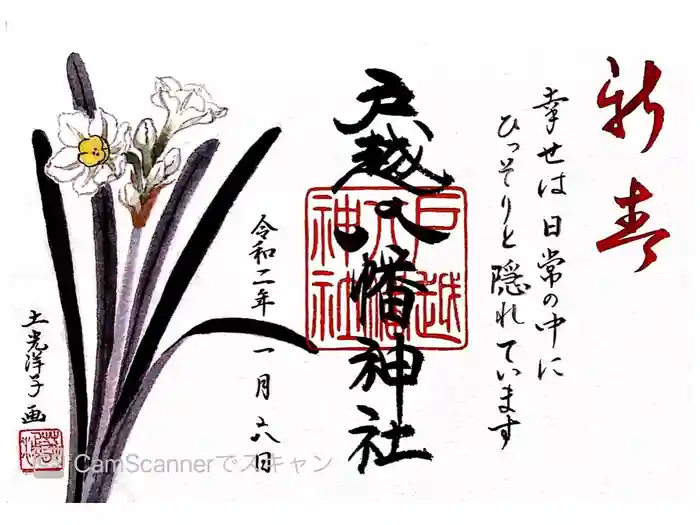 新春
幸せは日常の中に
ひっそりと隠れています
戸越八幡神社
戸越
八幡
神社
令和二年一月六日
土光洋子画
CamScannerでスキャン